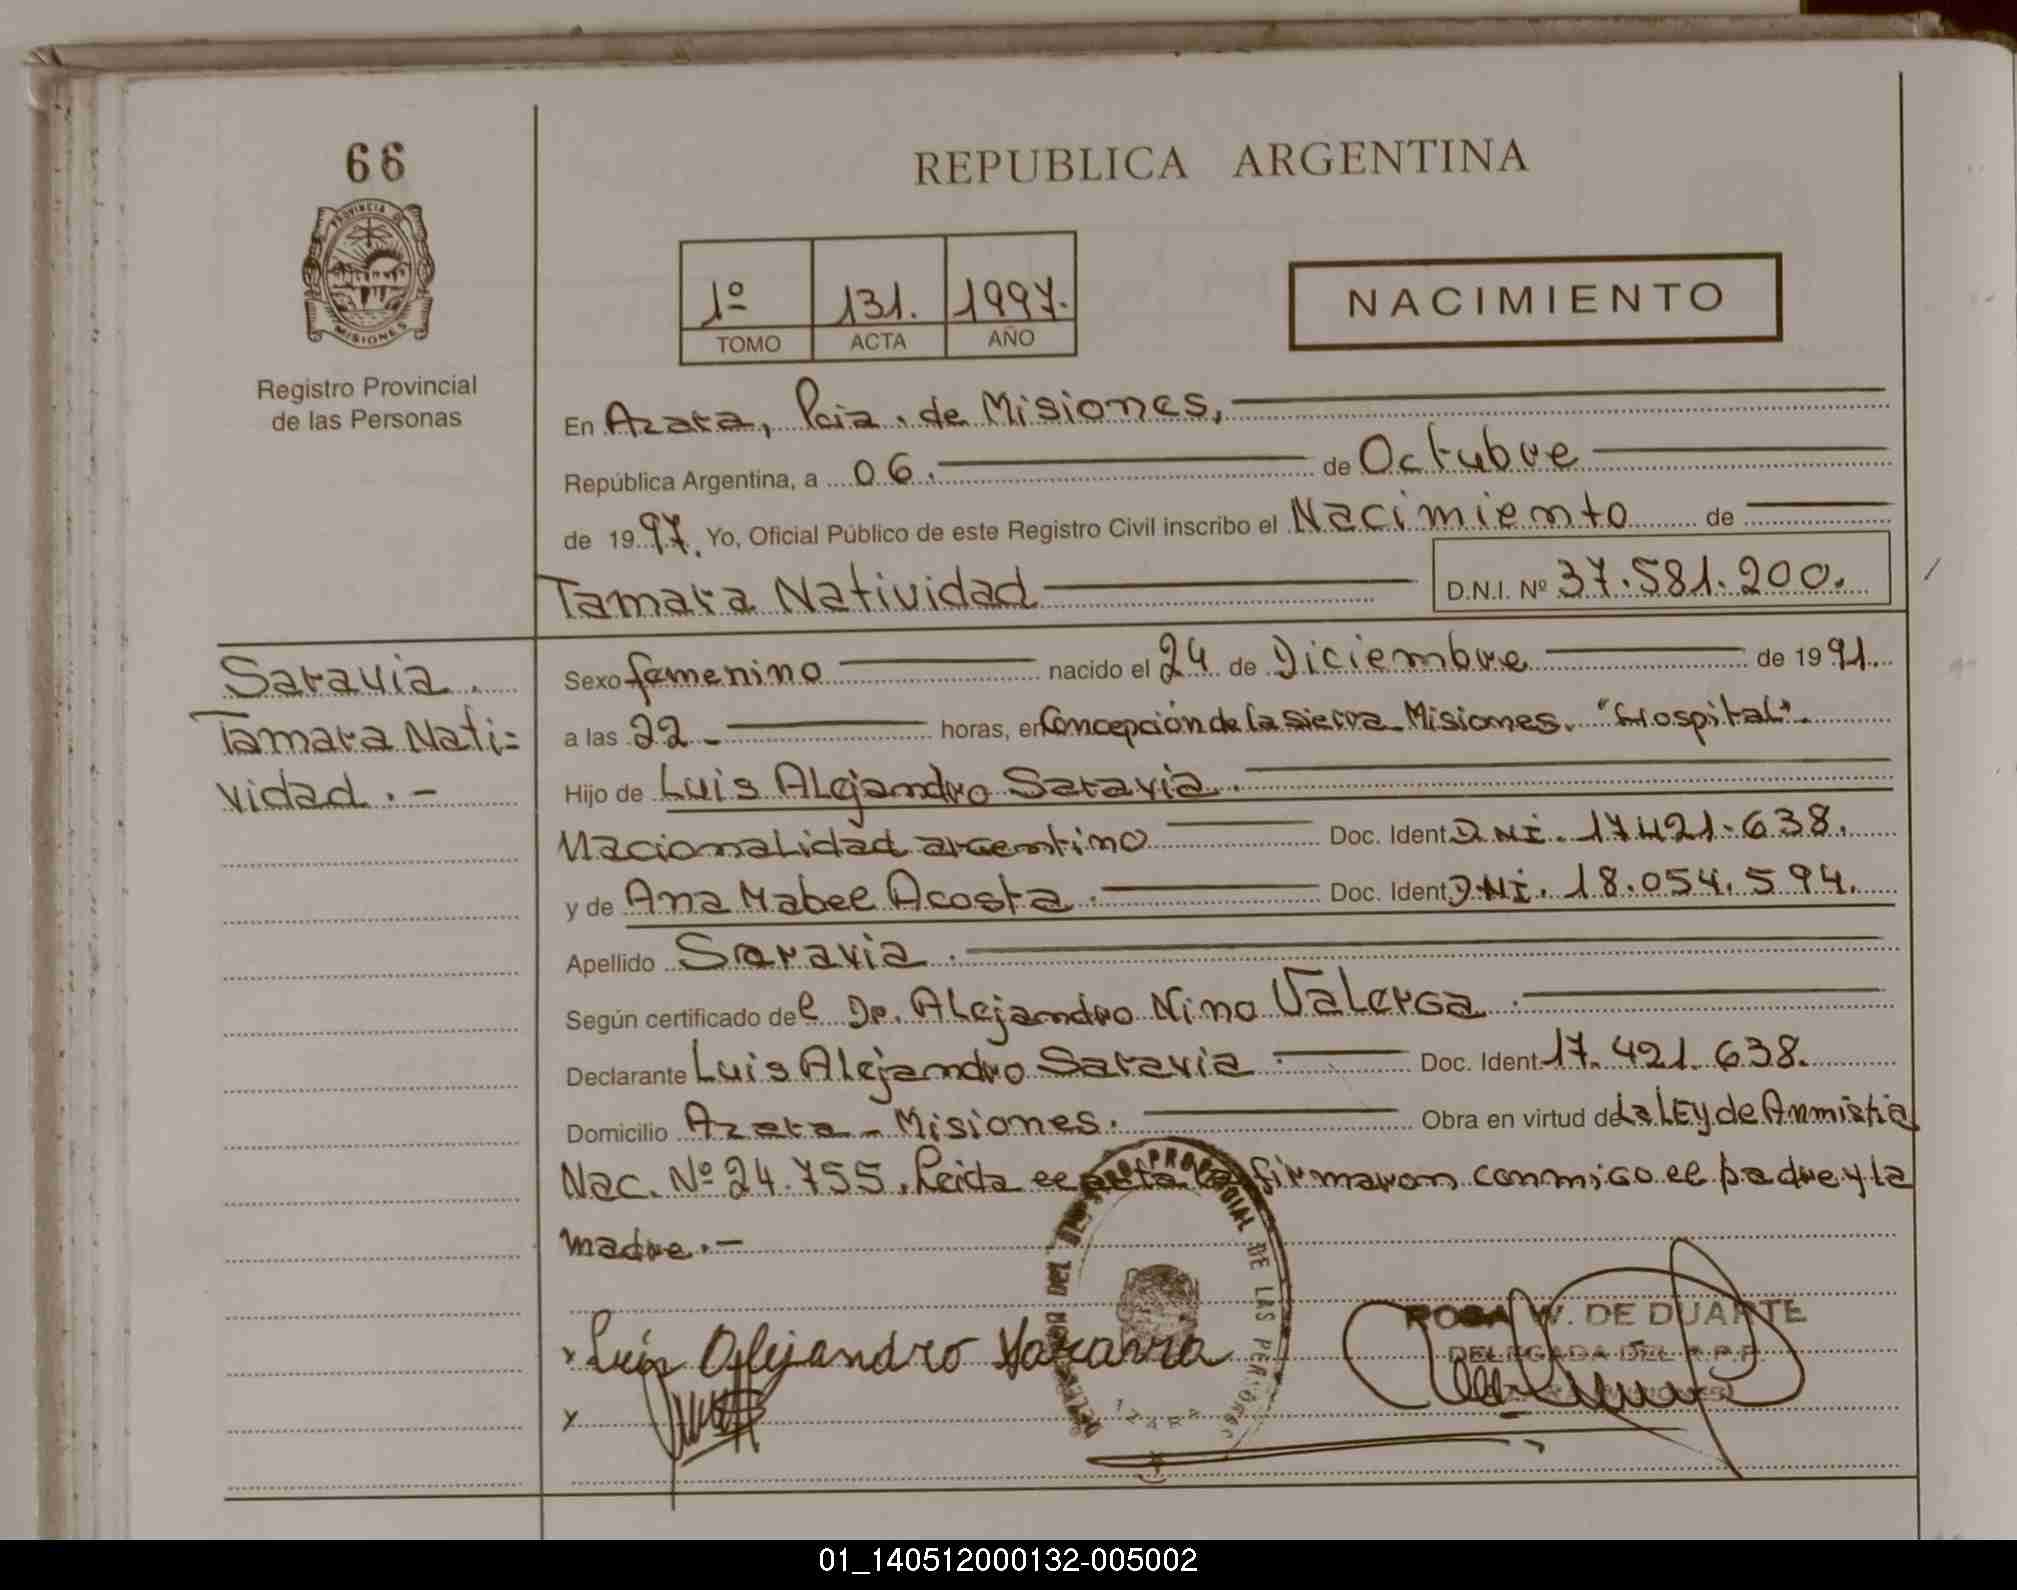 66
PROVINCIA DE
MISIONES
Registro Provincial
de las Personas
REPUBLICA ARGENTINA
1º 131. 1997.
TOMO ACTA AÑO
NACIMIENTO
En Azara, Pcia. de Misiones,
República Argentina, a 06. de Octubre
de 1997. Yo, Oficial Público de este Registro Civil inscribo el Nacimiento de
Tamara Natividad D.N.I. Nº 37.581.200.
Saravia.
Tamara Nati=
vidad.-
Sexo femenino nacido el 24 de Diciembre de 1991.
a las 22- horas, en Concepción de la Sierra Misiones. "Hospital".
Hijo de Luis Alejandro Saravia.
Nacionalidad argentino Doc. Ident. DNI. 17421-638.
y de Ana Mabel Acosta. Doc. Ident. DNI. 18.054.594.
Apellido Saravia.
Según certificado del Dr. Alejandro Nino Valerga.
Declarante Luis Alejandro Saravia Doc. Ident. 17.421.638.
Domicilio Azara - Misiones. Obra en virtud de la LEy de Anmistia
Nac. Nº 24.755. Leida el acta la firmaron conmigo el padre y la
madre.-
x Luis Alejandro Saravia
x
DEL REGISTRO PROVINCIAL DE LAS PERSONAS
AZARA
ROSA W. DE DUARTE
DELEGADA DEL R.P.P.
01_140512000132-005002